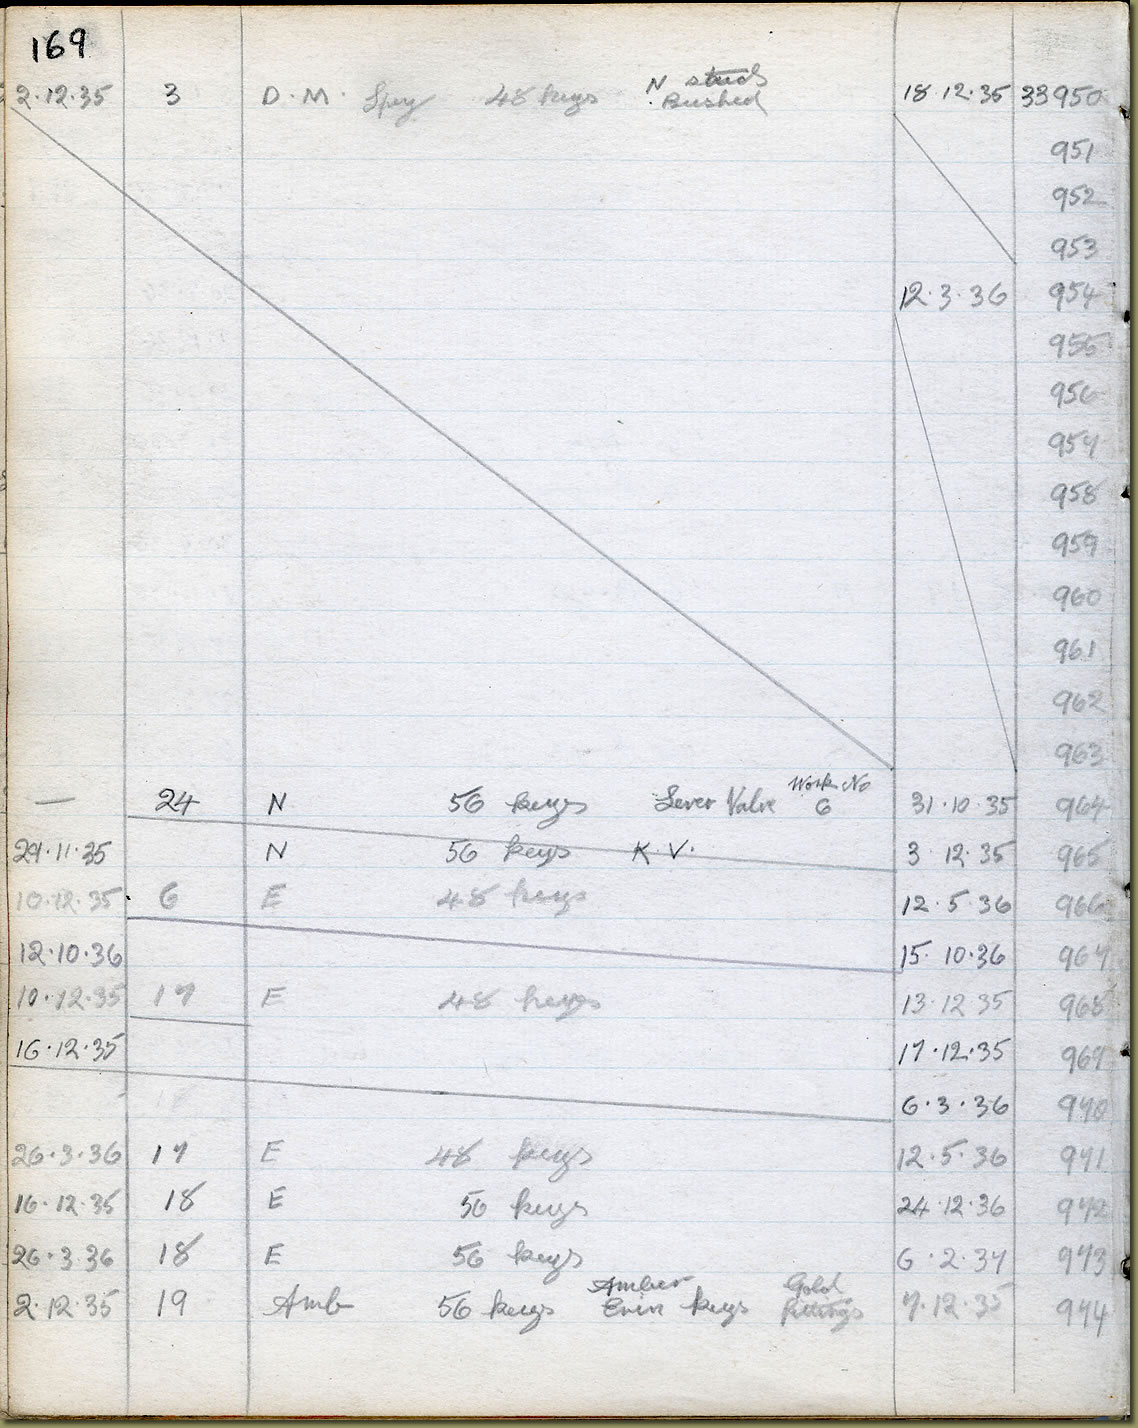 169
2·12·35 3 D·M· Spey 48 keys N studs Bushed 18·12·35 33950
951
952
953
12·3·36 954
955
956
957
958
959
960
961
962
963
— 24 N 56 keys Lever Valve Work No 6 31·10·35 964
29·11·35 N 56 keys K·V· 3·12·35 965
10·12·35 6 E 48 keys 12·5·36 966
12·10·36 15·10·36 967
10·12·35 17 E 48 keys 13·12·35 968
16·12·35 17·12·35 969
6·3·36 970
26·3·36 17 E 48 keys 12·5·36 971
16·12·35 18 E 56 keys 24·12·36 972
26·3·36 18 E 56 keys 6·2·37 973
2·12·35 19 Amb 56 keys Amber Erin keys Gold Fittings 7·12·35 974